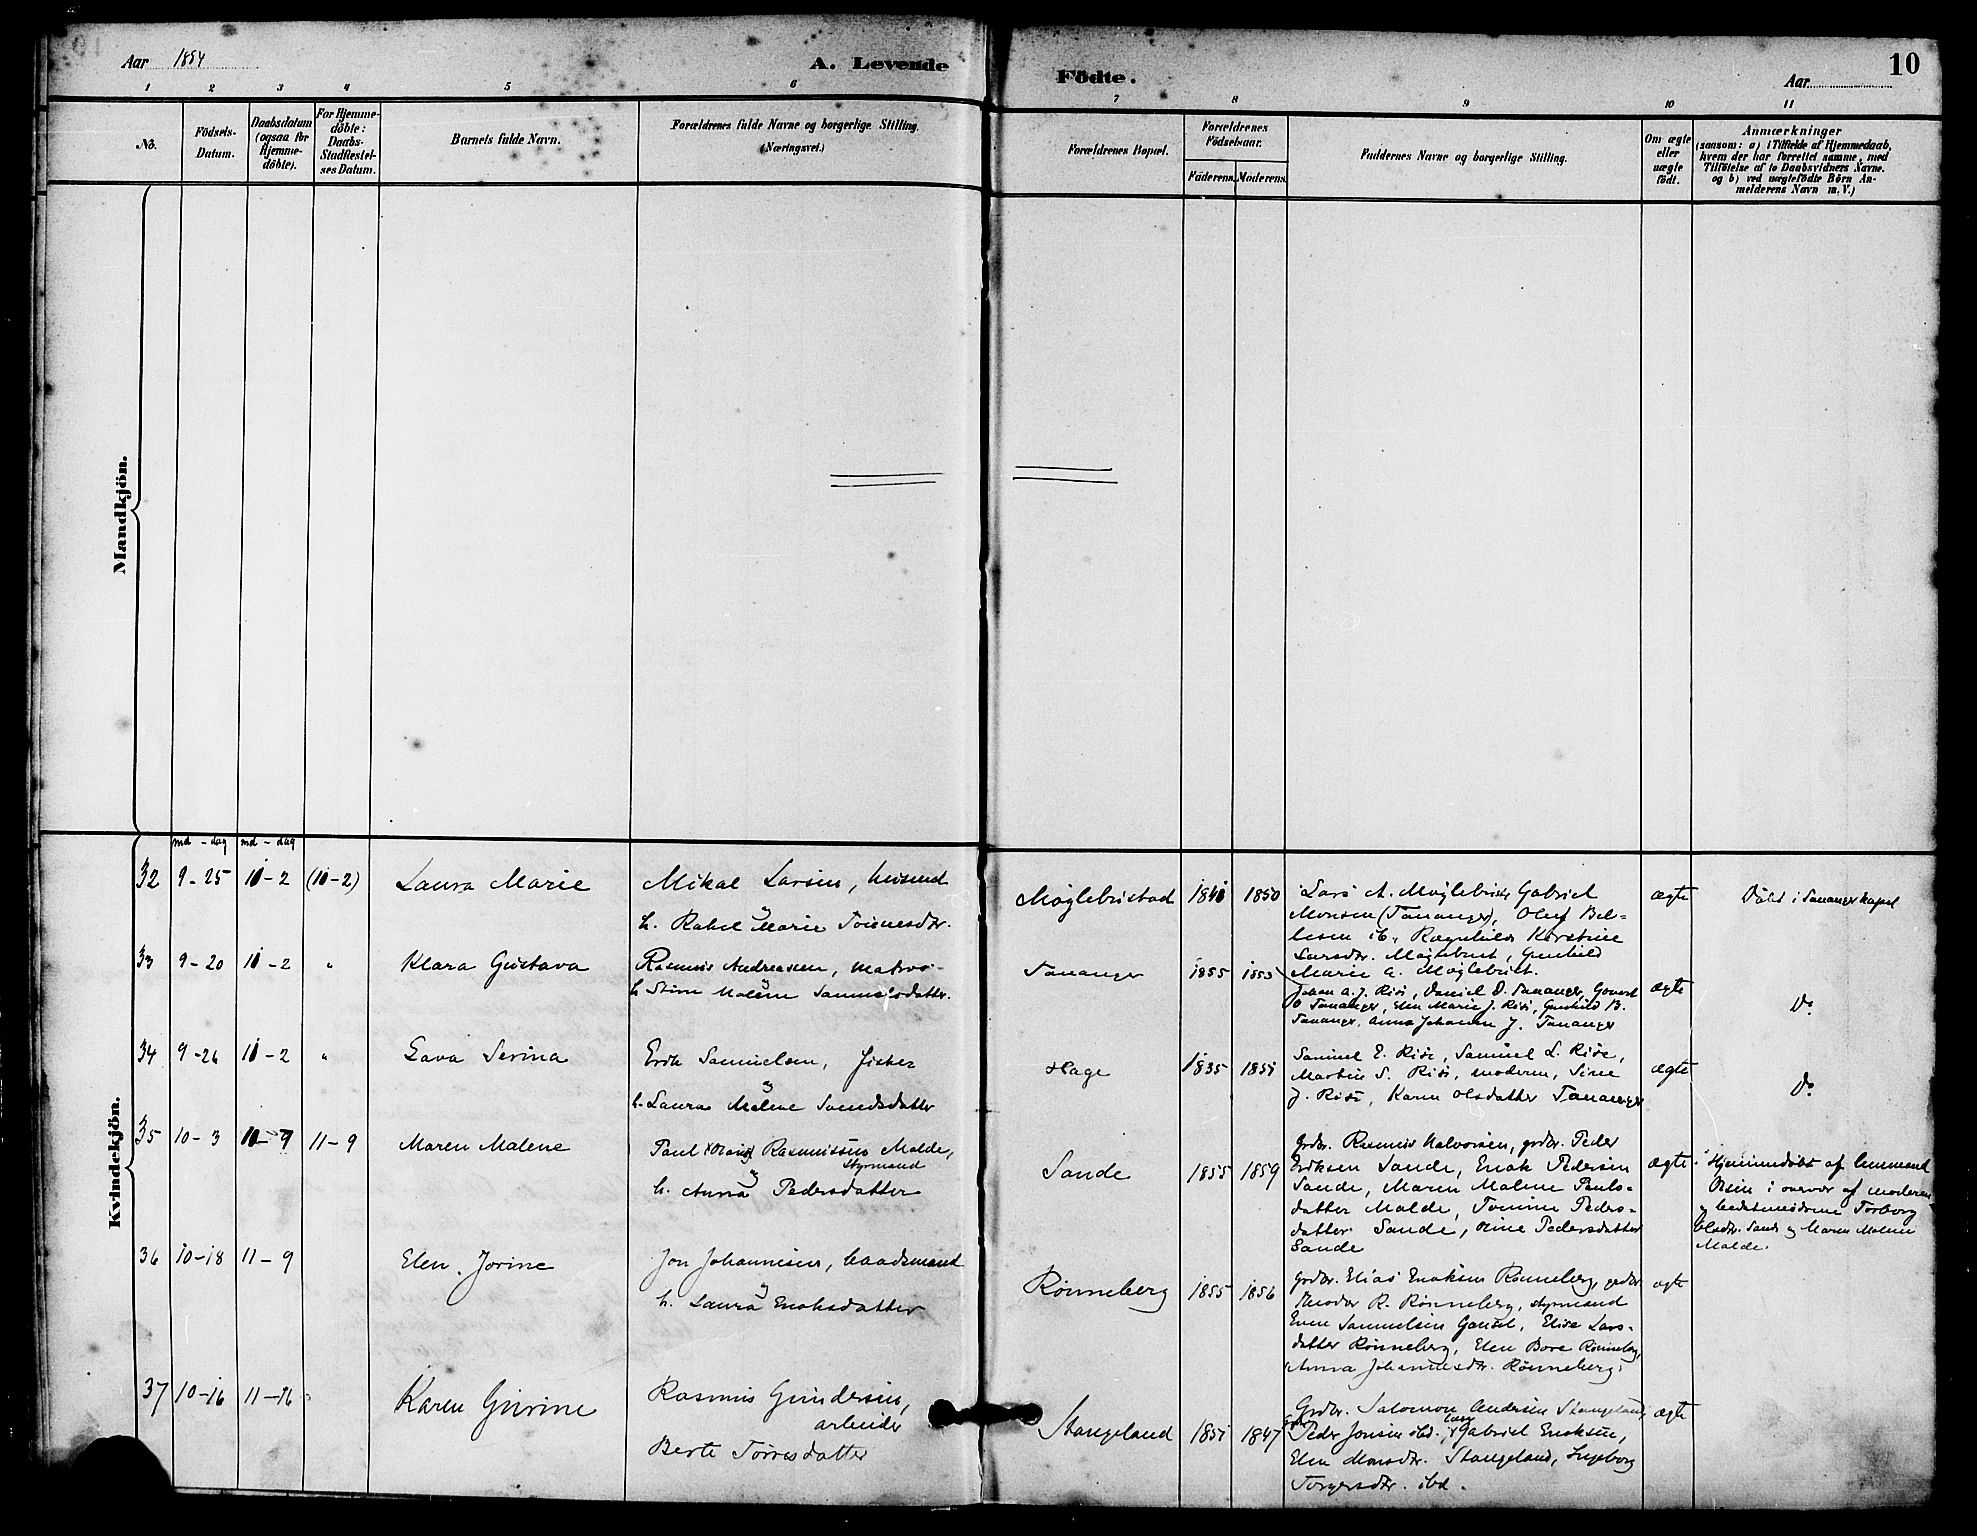 Aar 1884
A. Levende
Födte.
Aar
10
1 2 3 4 5 6 7 8 9 10 11
No.
Födsels-Datum.
Daabsdatum (ogsaa for Hjemme-döbte).
For Hjemme-döbte: Daabs-Stadfæstel-ses Datum.
Barnets fulde Navn.
Forældrenes fulde Navne og borgerlige Stilling.
(Næringsvei.)
Forældrenes Bopæl.
Forældrenes Födselsaar.
Faderens. Moderens.
Faddernes Navne og borgerlige Stilling.
Om ægte eller uægte födt.
Anmærkninger
(saasom: a) i Tilfælde af Hjemmedaab,
hvem der har forrettet samme, med
Tilföielse af to Daabsvidners Navne.
og b) ved uægtefödte Börn An-
melderens Navn m. V.)
Mandkjön.
Kvindekjön.
md - dag md - dag
32 9-25 11-2 (11-2) Laura Marie
Mikal Larsen, husmd
h. Rakel Marie Tønnesdtr.
Møglebustad 1841 1850
Lars A. Møglebust, Gabriel
Monsen (Tananger), Oluf Bel-
lesen ib., Ragnhild Kirstine
Larsdtr. Møglebust, Gunhild
Marie A. Møglebust.
ægte
Døbt i Tananger kapel
33 9-20 11-2 " Klara Gustava
Rasmus Andreassen, matros
h. Stine Malene Samuelsdatter.
Tananger 1855 1855
Johan A. J. Risø, Daniel D. Tananger, Govert
O Tananger, Elen Marie J. Risø, Gunhild B.
Tananger, Anna Johanne J. Tananger
ægte
Do
34 9-26 11-2 " Lava Serina
Erik Samuelsen, fisker
h. Laura Malene Svendsdatter
Hage 1835 1851
Samuel E. Risø, Samuel L. Risø,
Martin S. Risø, moderen, Sine
J. Risø, Karen Olsdatter Tananger
ægte
Do
35 10-3 11-9 11-9 Maren Malene
Paul Rasmussen Malde,
styrmand
h. Anna Pedersdatter
Sande 1855 1859
grdbr. Rasmus Halvorsen, grdbr. Peder
Eriksen Sande, Enok Pedersen
Sande, Maren Malene Pauls-
datter Malde, Tomine Peders-
datter Sande, Oline Pedersdatter
Sande
ægte
Hjemmedøbt af lensmand
Olsen i overvær af moderen
og bedstemødrene Torborg
Olsdtr. Sande og Maren Malene
Malde.
36 10-18 11-9 Elen Jorine
Jon Johannesen, baadsmand
h. Laura Enoksdatter
Rønneberg 1855 1856
grdbr. Elias Enoksen Rønneberg, grdbr
Theodor R. Rønneberg, styrmand
Even Samuelsen Gausel, Elise Lars-
datter Rønneberg, Elen Bore Rønneberg,
Anna Johannesdtr. Rønneberg.
ægte
37 10-16 11-16 Karen Gurine
Rasmus Gundersen,
arbeider
Berte Torresdatter
Stangeland 1851 1847
Grdbr. Salomon Andersen Stangeland,
Peder Jonsen ibd., Gabriel Enoksen,
Elen Monsdtr. Stangeland, Ingeborg
Torgersdtr. ibd.
ægte